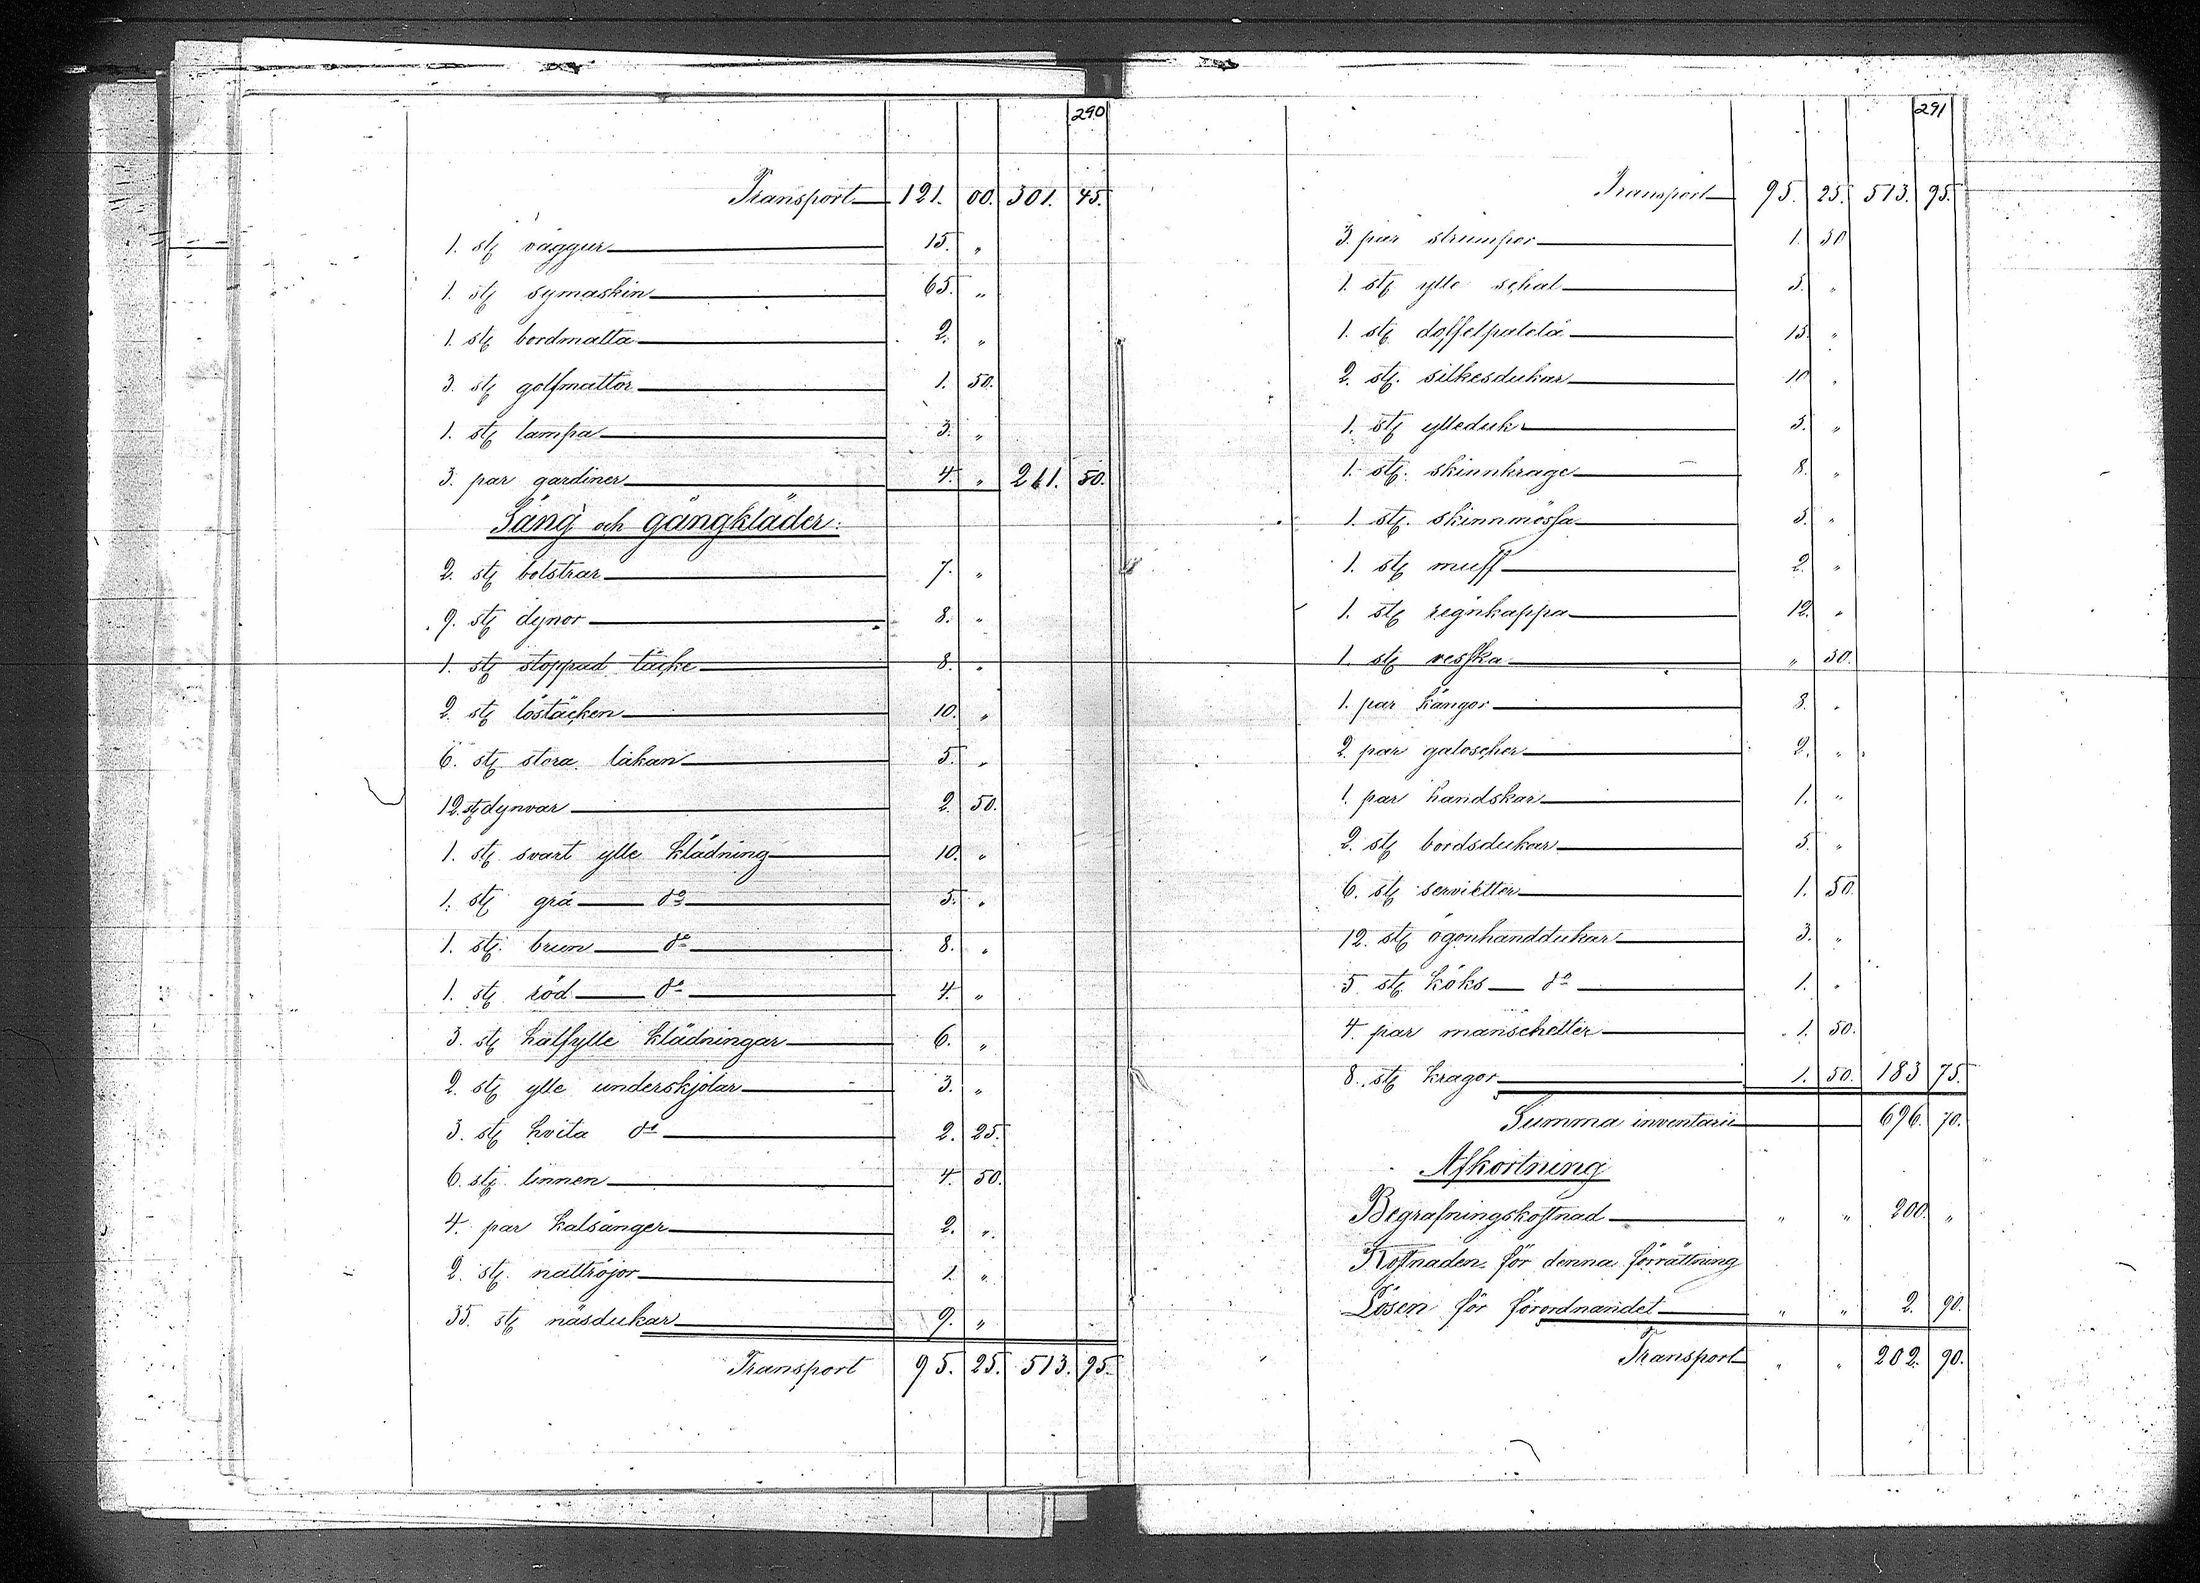 290
Transport 121. 00. 301. 45.
1. stg väggur 15. "
1. stg symaskin 65. "
1. stg bordmatta 2. "
3. stg golfmattor 1. 50.
1. stg lampa 3. "
3. par gardiner 4. " 211. 50.
Säng och gångkläder:
2. stg bolstrar 7. "
9. stg dynor 8. "
1. stg stoppad täcke 8. "
2. stg löstäcken 10. "
6. stg stora lakan 5. "
12. stg dynvar 2. 50.
1. stg svart ylle klädning 10. "
1. stg grå do 5. "
1. stg brun do 8. "
1. stg röd do 4. "
3. stg halfylle klädningar 6. "
2. stg ylle underskjolar 3. "
3. stg hvita do 2. 25.
6. stg linnen 4. 50.
4. par kalsånger 2. "
2. stg. nattröjor 1. "
35. stg näsdukar 9. "
Transport 95. 25. 513. 95.
291
Transport 95. 25. 513. 95.
3. par strumpor 1. 50
1. stg ylle schal 5. "
1. stg doffelpaletå 15. "
2. stg. silkesdukar 10 "
1. stg ylleduk 5. "
1. stg. skinnkrage 8. "
1. stg. skinnmössa 5. "
1. stg muff 2. "
1. stg regnkappa 12. "
1. stg resska " 50.
1. par kängor 8. "
2. par galoscher 2. "
1. par handskar 1. "
2. stg bordsdukar 5. "
6. stg servietter 1. 50.
12. stg ögonhanddukar 3. "
5 stg. köks do 1. "
4. par manschetter 1. 50.
8. stg kragor 1. 50. 183 75.
Summa inventarie 696. 70.
Afkortning
Begrafningskostnad " " 200. "
Kostnaden för denna förrättning
Lösen för förordnandet " " 2. 90.
Transport " " 202. 90.